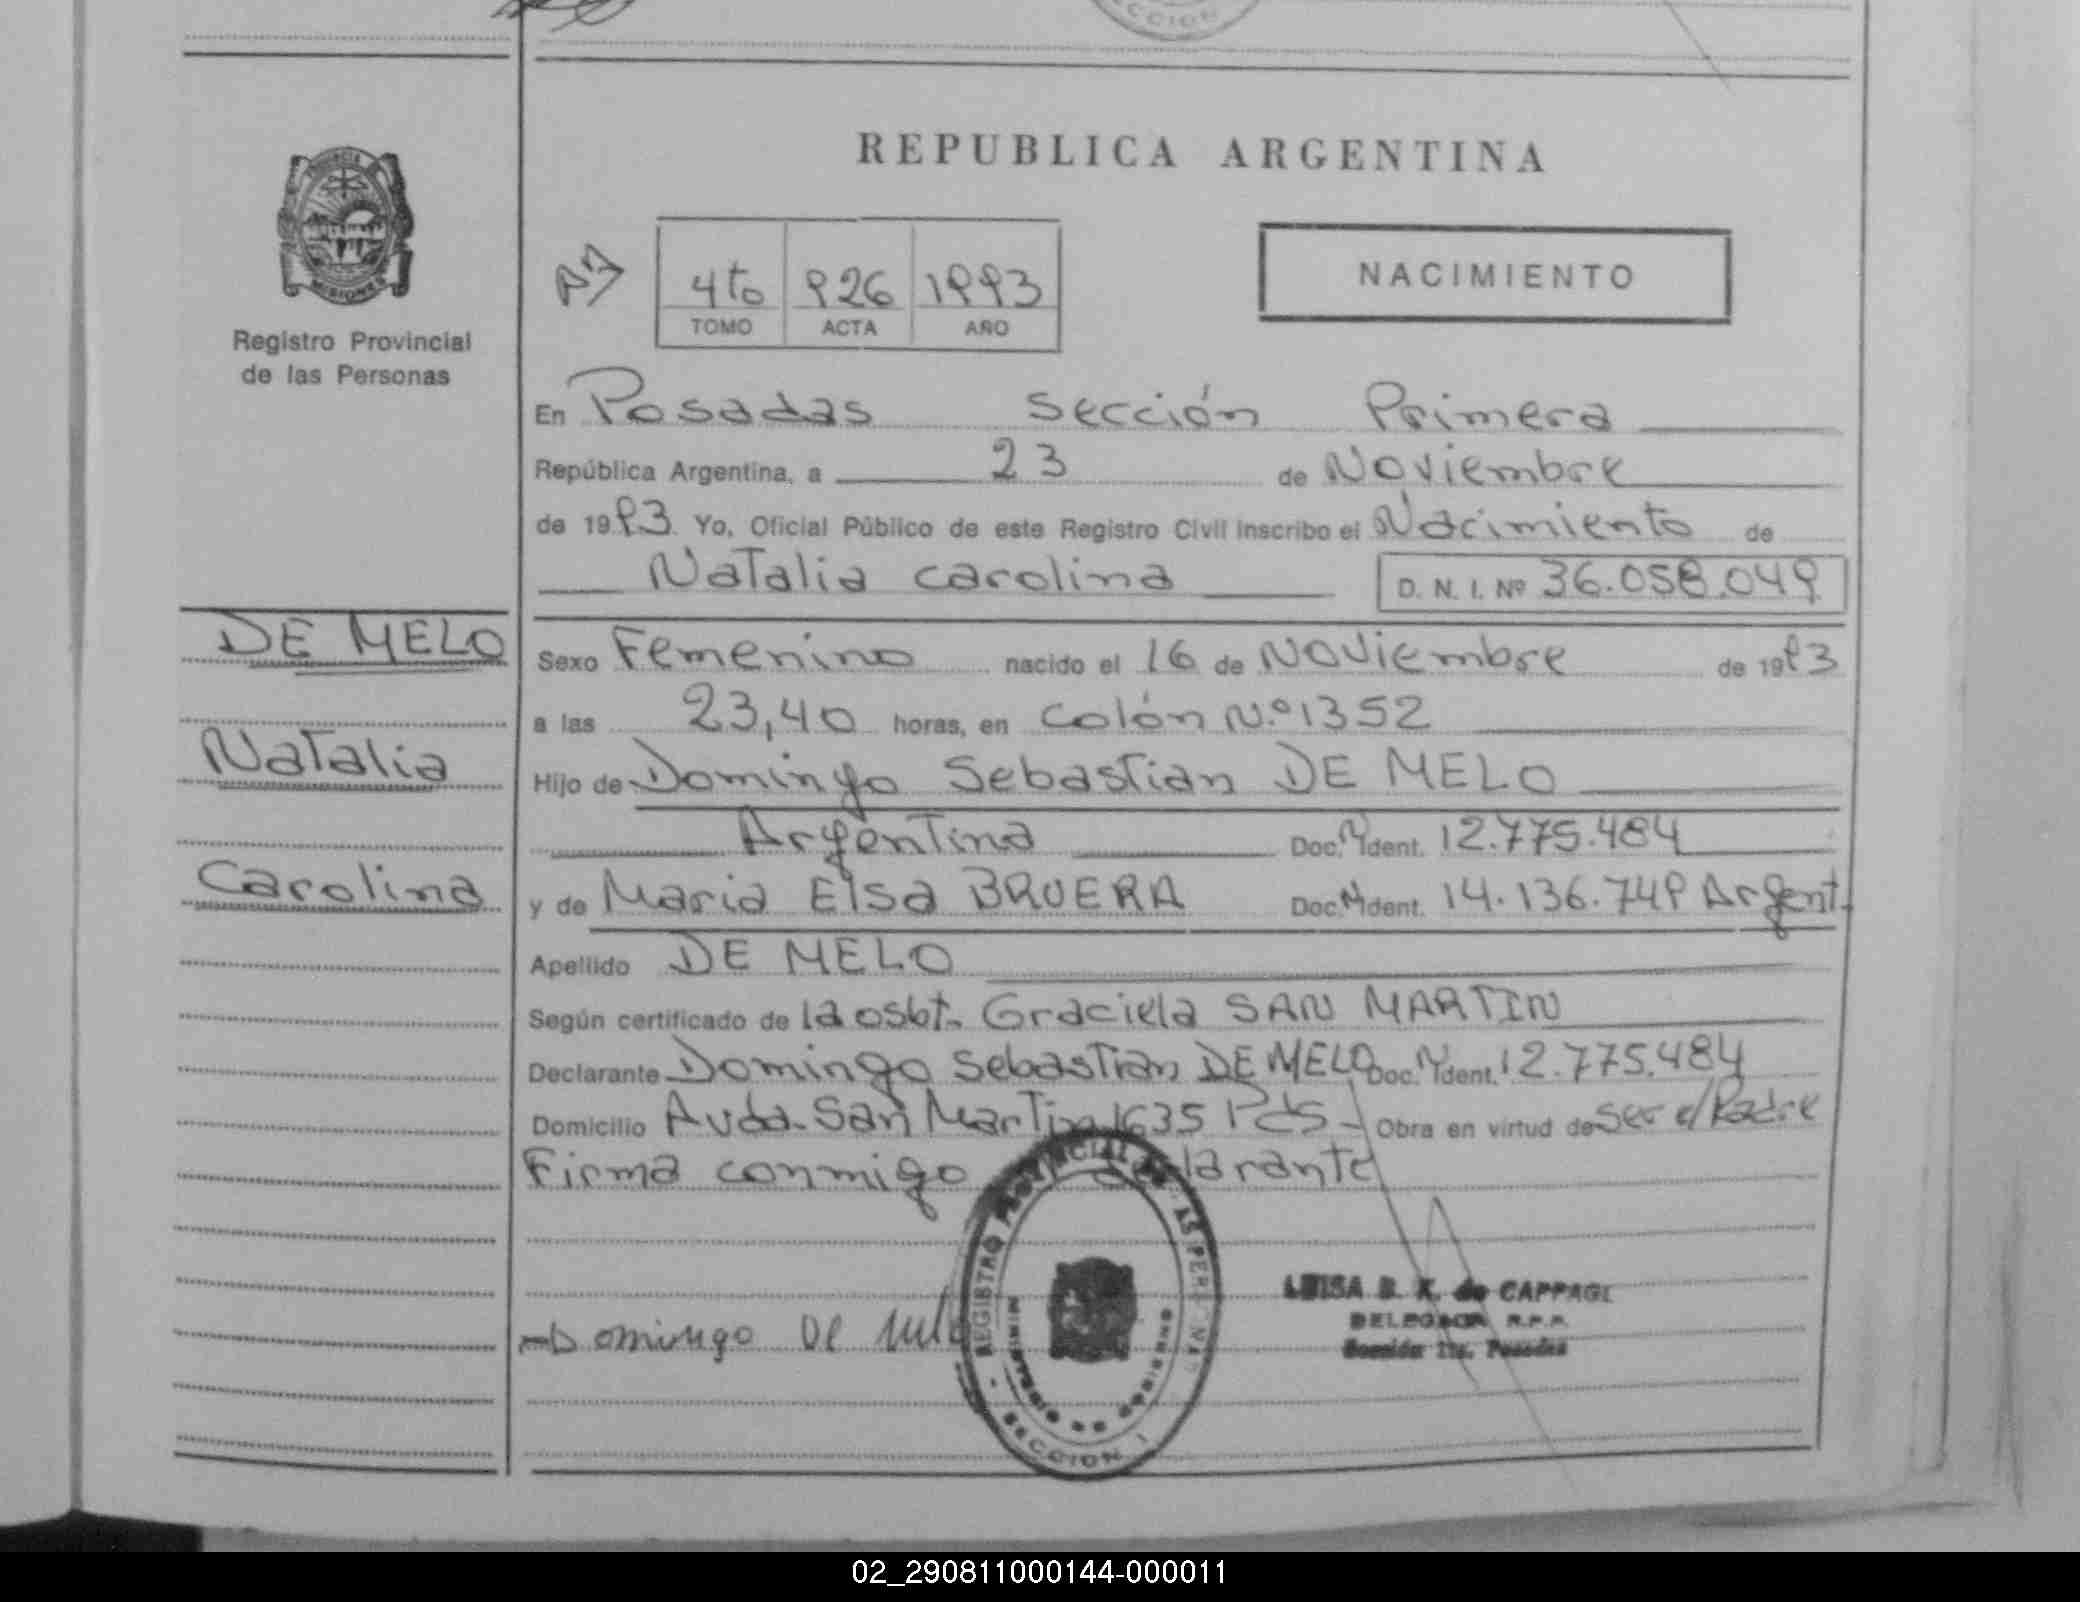 CCION
REPUBLICA ARGENTINA
PROVINCIA
MISIONES
Registro Provincial
de las Personas
4to 926 1993
TOMO ACTA AÑO
NACIMIENTO
En Posadas Sección Primera
República Argentina, a 23 de Noviembre
de 1993. Yo, Oficial Público de este Registro Civil inscribo el Nacimiento de
Natalia Carolina D. N. I. Nº 36.058.049
DE MELO
Natalia
Carolina
Sexo Femenino nacido el 16 de Noviembre de 1993
a las 23,40 horas, en Colón N.º 1352
Hijo de Domingo Sebastian DE MELO
Argentina Doc. Ident. 12.775.484
y de Maria Elsa BRUERA Doc. Ident. 14.136.749 Argent.
Apellido DE MELO
Según certificado de la osbt. Graciela SAN MARTIN
Declarante Domingo Sebastian DE MELO Doc. Ident. 12.775.484
Domicilio Avda. San Martin 1635 Pds - Obra en virtud de ser e/ Padre
Firma conmigo declarante
Domingo De Melo
REGISTRO PROVINCIAL DE LAS PERSONAS
MINISTERIO DE GOBIERNO
- SECCION I
LUISA B. K. de CAPPAGL
DELEGADA R.P.P.
Sección 1ra. Posadas
02_290811000144-000011